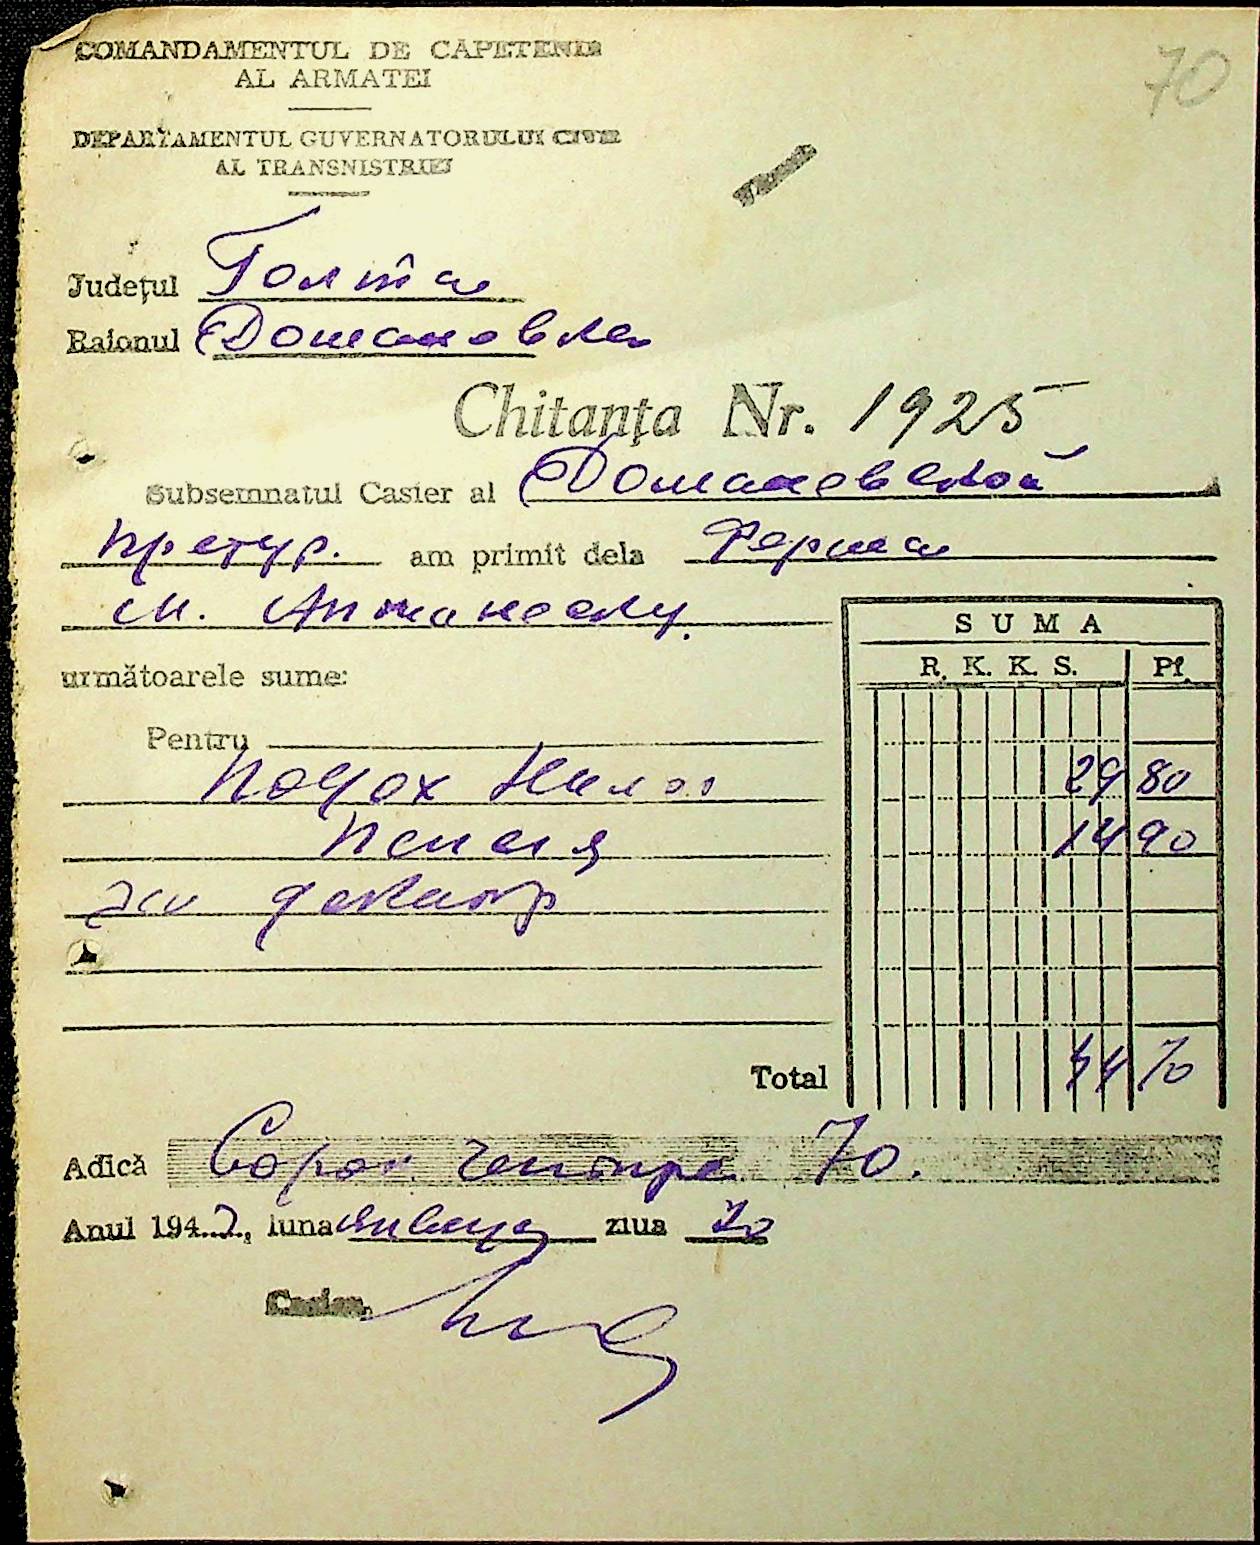 70
COMANDAMENTUL DE CĂPETENIE
AL ARMATEI
DEPARTAMENTUL GUVERNATORULUI CIVIL
AL TRANSNISTRIEI
Județul Голта
Raionul Домановка
Chitanța Nr. 1925
Subsemnatul Casier al Домановской
претур. am primit dela Ферма
им. Антонеску.
următoarele sume:
SUMA
R. K. K. S. Pf.
Pentru
Подох 29 80
пенсия 14 90
за декабр
Total 44 70
Adică Сорок четыре 70.
Anul 1942, luna января ziua 20
Casier,